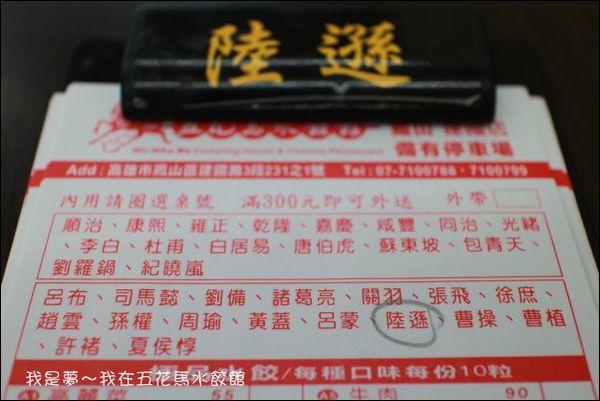 陸遜
備有停車場
Add：高雄市鳳山區建國路3段231之1號 Tel：07-7100788・7100799
內用請圈選桌號 滿300元即可外送 外帶
順治、康熙、雍正、乾隆、嘉慶、咸豐、同治、光緒
、李白、杜甫、白居易、唐伯虎、蘇東坡、包青天、
劉羅鍋、紀曉嵐
呂布、司馬懿、劉備、諸葛亮、關羽、張飛、徐庶、
趙雲、孫權、周瑜、黃蓋、呂蒙、陸遜、曹操、曹植
、許褚、夏侯惇
餃/每種口味每份10粒
高麗菜 55 牛肉 90
我是夢～我在五花馬水餃館